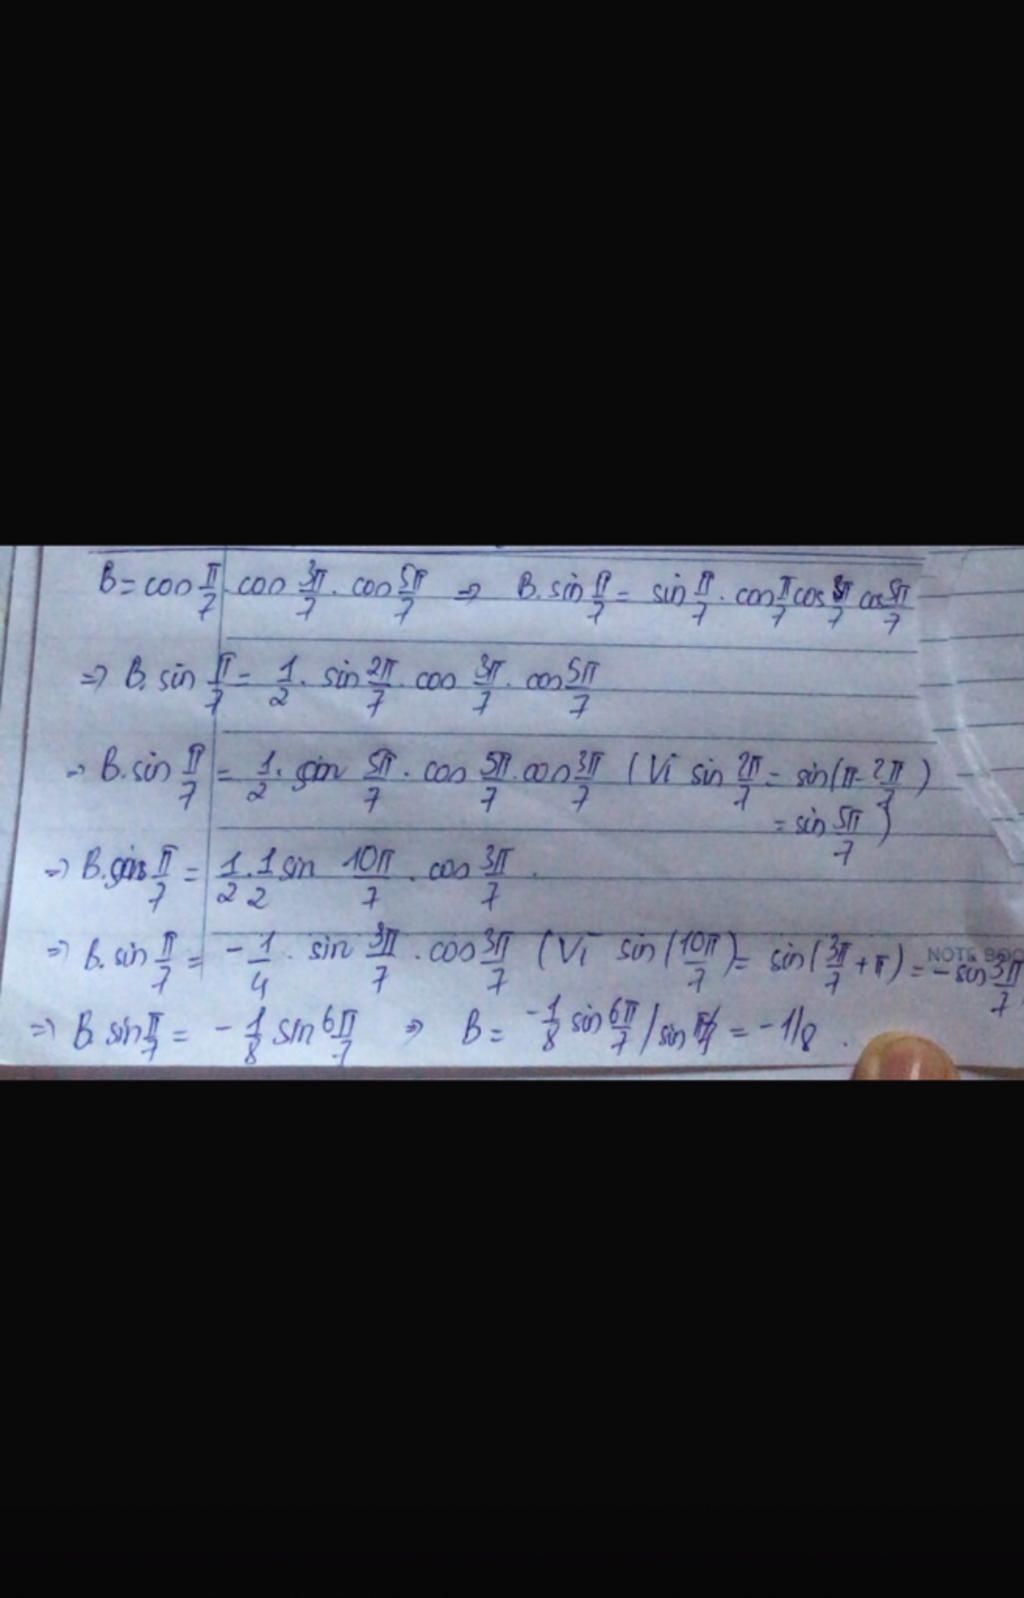 B = cos π/7 . cos 3π/7 . cos 5π/7 => B. sin π/7 = sin π/7 . cos π/7 cos 3π/7 cos 5π/7
=> B. sin π/7 = 1/2 . sin 2π/7 . cos 3π/7 . cos 5π/7
=> B. sin π/7 = 1/2 . sin 5π/7 . cos 5π/7 . cos 3π/7 (Vì sin 2π/7 = sin(π - 2π/7)
= sin 5π/7)
=> B. sin π/7 = 1/2 . 1/2 sin 10π/7 . cos 3π/7 .
=> B. sin π/7 = - 1/4 . sin 3π/7 . cos 3π/7 (Vì sin (10π/7) = sin (3π/7 + π) = - sin 3π/7
NOTE BOO
=> B. sin π/7 = - 1/8 sin 6π/7 => B = - 1/8 sin 6π/7 / sin π/7 = -1/8 .